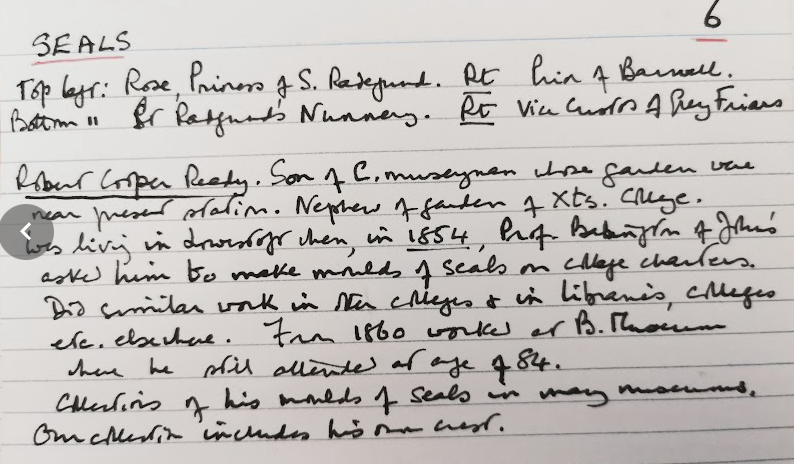 6
SEALS
Top left: Rose, Prioress of S. Radegund. Rt Prior of Barnwell.
Bottom " St Radegund's Nunnery. Rt Vice Custos of Grey Friars
Robert Cooper Ready. Son of C. nurseryman whose gardens were
near present station. Nephew of gardener of Xts. College.
Was living in Lowestoft when, in 1854, Prof. Babington of John's
asked him to make moulds of seals on college charters.
Did similar work in other colleges & in libraries, colleges
etc. elsewhere. From 1860 worked at B. Museum
where he still attended at age of 84.
Collections of his moulds of seals in many museums.
Our collection includes his own crest.